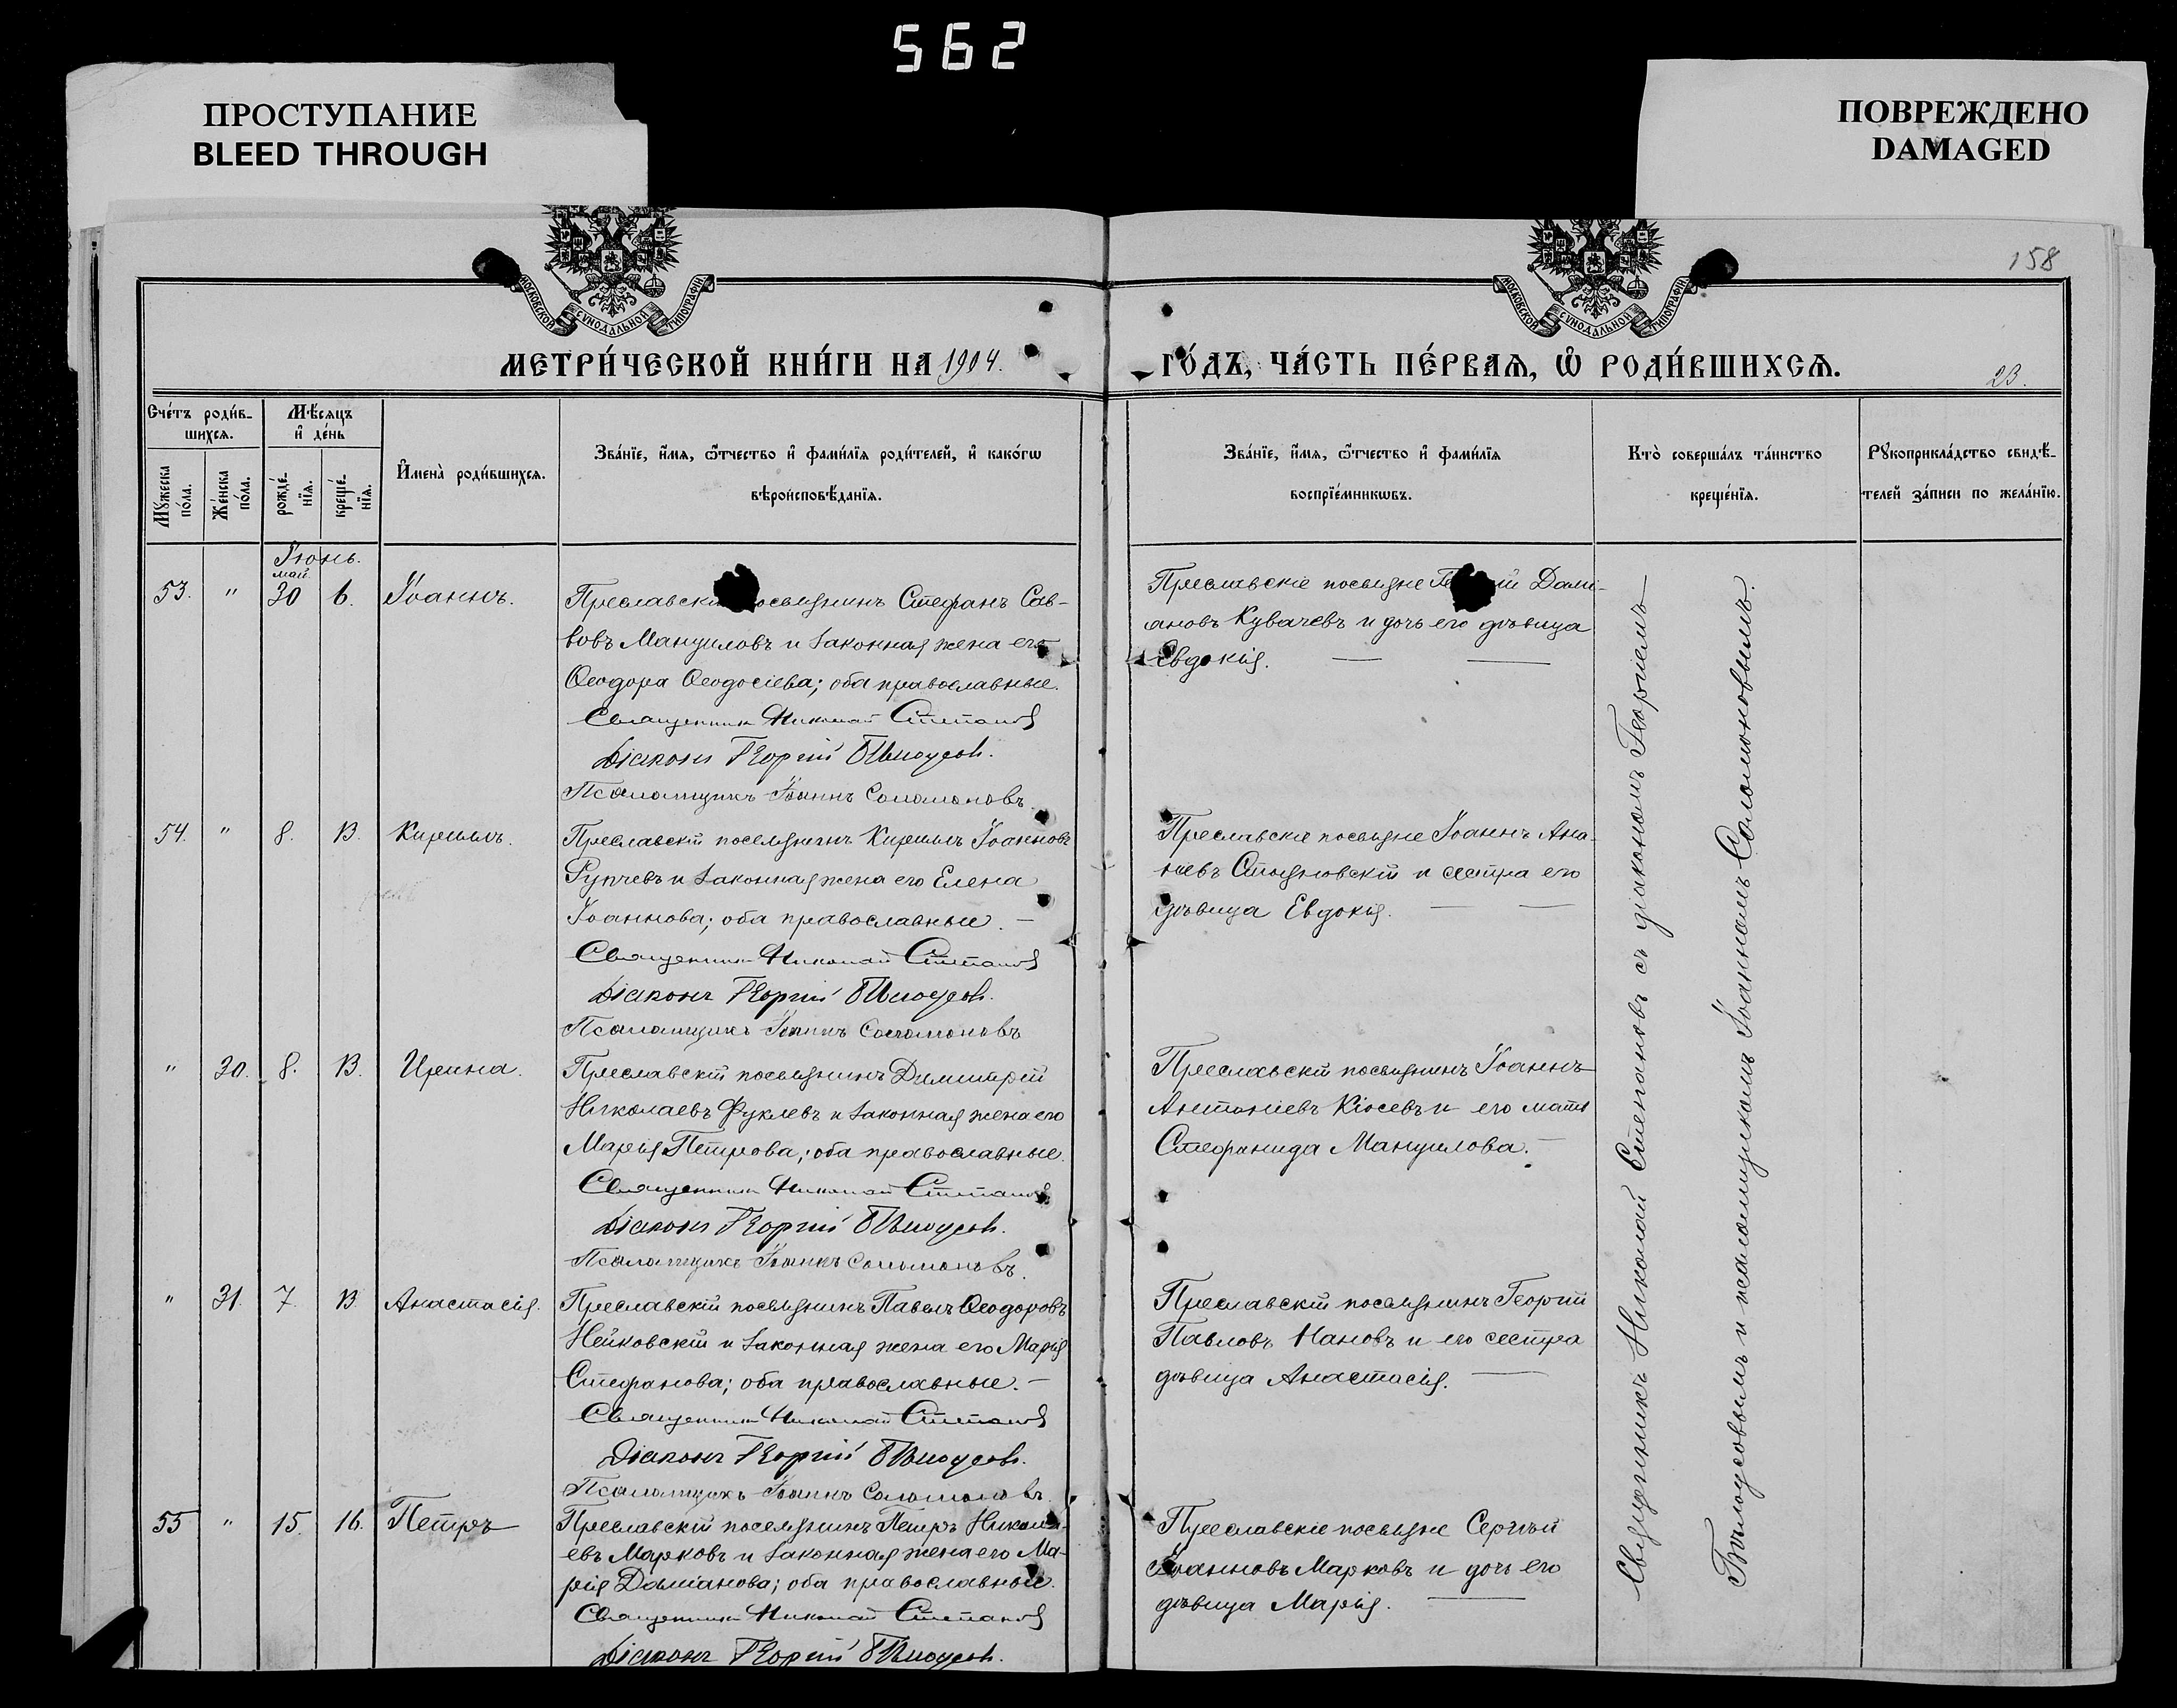 562
ПРОСТУПАНИЕ
BLEED THROUGH
ПОВРЕЖДЕНО
DAMAGED
МОСКОВСКОЙ СУНОДАЛЬНОЙ ТИПОГРАФІИ
МОСКОВСКОЙ СУНОДАЛЬНОЙ ТИПОГРАФІИ
158
МЕТРИ́ЧЕСКОЙ КНИ́ГИ НА 1904.
ГО́ДЪ, ЧА́СТЬ ПЕ́РВАѦ, Ѿ РОДИ́ВШИХСѦ.
23.
Сче́тъ роди́в-
шихсѧ.
Мѣ́сяцъ
и҆ де́нь
Мꙋ́жеска
по́ла.
Же́нска
по́ла.
рожде́-
нїѧ.
креще́-
нїѧ.
И҆мена̀ роди́вшихсѧ.
Зва́нїе, и҆́мѧ, ѻ҆́тчество и҆ фами́лїѧ роди́телей, и҆ како́гѡ
вѣроисповѣ́данїѧ.
Зва́нїе, и҆́мѧ, ѻ҆́тчество и҆ фами́лїѧ
воспрїе́мникѡвъ.
Кто̀ соверша́лъ та́инство
креще́нїѧ.
Рꙋкоприкла́дство свидѣ́-
телей за́писи по жела́нїю.
Іюнь.
май.
53. " 30 6. Іоаннъ.
Преславскій поселянинъ Стефанъ Сав-
вовъ Мануиловъ и законная жена его
Ѳеодора Ѳеодосіева; оба православные.
Священникъ Николай Степановъ
Діаконъ Георгій Бѣлоусовъ.
Псаломщикъ Іоаннъ Соломоновъ.
Преславскіе поселяне Дамі-
ановъ Кувачевъ и дочь его дѣвица
Евдокія.
54. " 8. 13. Кириллъ.
Преславскій поселянинъ Кириллъ Іоанновъ
Рупчевъ и законная жена его Елена
Іоаннова; оба православные.
Священникъ Николай Степановъ
Діаконъ Георгій Бѣлоусовъ.
Псаломщикъ Іоаннъ Соломоновъ
Преславскіе поселяне Іоаннъ Ана-
ніевъ Стояновскій и сестра его
дѣвица Евдокія.
" 30. 8. 13. Ирина.
Преславскій поселянинъ Димитрій
Николаевъ Фуклевъ и законная жена его
Марія Петрова; оба православные.
Священникъ Николай Степановъ
Діаконъ Георгій Бѣлоусовъ.
Псаломщикъ Іоаннъ Соломоновъ.
Преславскій поселянинъ Іоаннъ
Антоніевъ Кіосевъ и его мать
Стефанида Мануилова.
" 31. 7. 13. Анастасія.
Преславскій поселянинъ Павелъ Ѳеодоровъ
Нейковскій и законная жена его Марія
Стефанова; оба православные.
Священникъ Николай Степановъ
Діаконъ Георгій Бѣлоусовъ.
Псаломщикъ Іоаннъ Соломоновъ.
Преславскій поселянинъ Георгій
Павловъ Нановъ и его сестра
дѣвица Анастасія.
55 " 15. 16. Петръ
Преславскій поселянинъ Петръ Никола-
евъ Марковъ и законная жена его Ма-
рія Даміанова; оба православные.
Священникъ Николай Степановъ
Діаконъ Георгій Бѣлоусовъ.
Преславскіе поселяне Сергѣй
Іоанновъ Марковъ и дочь его
дѣвица Марія.
Священникъ Николай Степановъ съ діакономъ Георгіемъ
Бѣлоусовымъ и псаломщикомъ Іоанномъ Соломоновымъ.